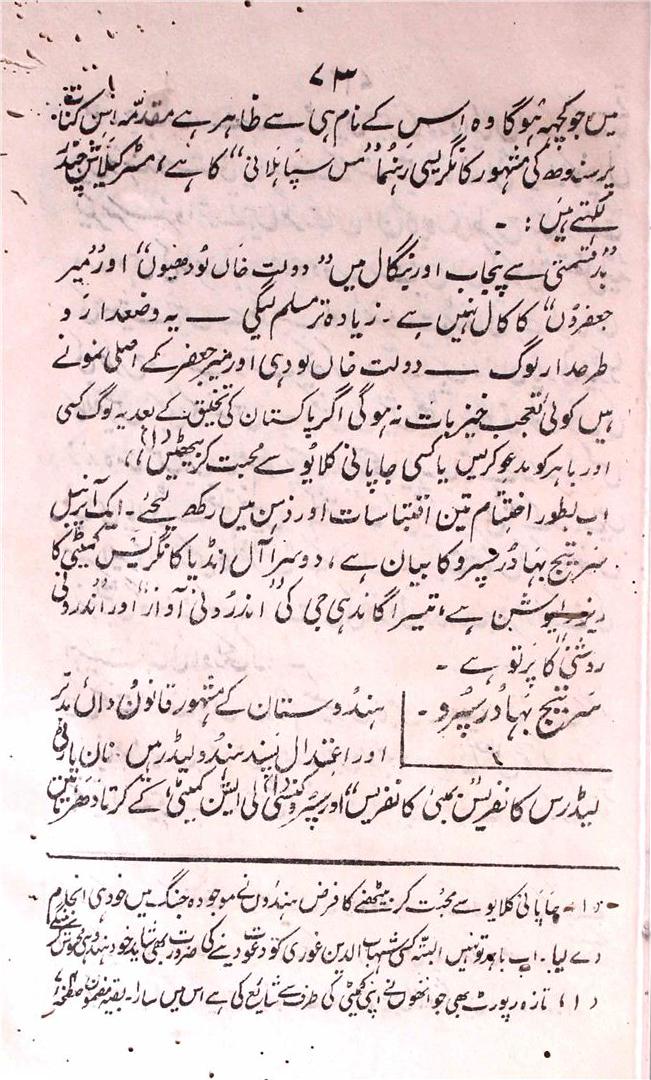 ۷۳
میں جو کچھ ہوگا وہ اس کے نام ہی سے ظاہر ہے مقدمہ اس کتاب
پر سندھ کی مشہور کانگریسی رہنما "مس سپاہلانی" کا ہے، مسٹر کیلاش چندر
لکھتے ہیں: ۔
"بدقسمتی سے پنجاب اور بنگال میں "دولت خاں لودھیوں" اور "میر
جعفروں" کا کال نہیں ہے۔ زیادہ تر مسلم لیگی — یہ وضعدار و
طرحدار لوگ — دولت خاں لودی اور میر جعفر کے اصلی نمونے
ہیں کوئی تعجب خیز بات نہ ہوگی اگر پاکستان کی تخلیق کے بعد یہ لوگ کسی
اور بابر کو مدعو کریں یا کسی جاپانی کلایو سے محبت کر بیٹھیں (۱)"
اب بطور اختتام تین اقتباسات اور ذہن میں رکھ لیجئے۔ ایک آنریبل
سر تیج بہادر سپرو کا بیان ہے، دوسرا آل انڈیا کانگریس کمیٹی کا
ریزولیوشن ہے، تیسرا گاندھی جی کی "اندرونی آواز" اور "اندرونی
روشنی" کا پرتو ہے ۔
سر تیج بہادر سپرو ۔
ہندوستان کے مشہور قانون داں مدبر
اور اعتدال پسند ہندو لیڈر ہیں۔ نان پارٹی
لیڈرس کانفرنس" بمبئی کانفرنس" اور سپرو کنسی لی ایشن کمیٹی" کے کرتا دھرتا ہیں
(۱) جاپانی کلایو سے محبت کر بیٹھنے کا فرض ہندوں نے موجودہ جنگ میں خود ہی انجام
دے لیا۔ اب بابر تو نہیں البتہ کسی شہاب الدین غوری کو دعوت دینے کی ضرورت بھی شاید خود ہندو ہی محسوس کرینگے
(۱) تازہ رپورٹ بھی جو انھوں نے اپنی کمیٹی کی طرف سے شایع کی ہے اس میں سارا۔ بقیہ مضمون صفحہ